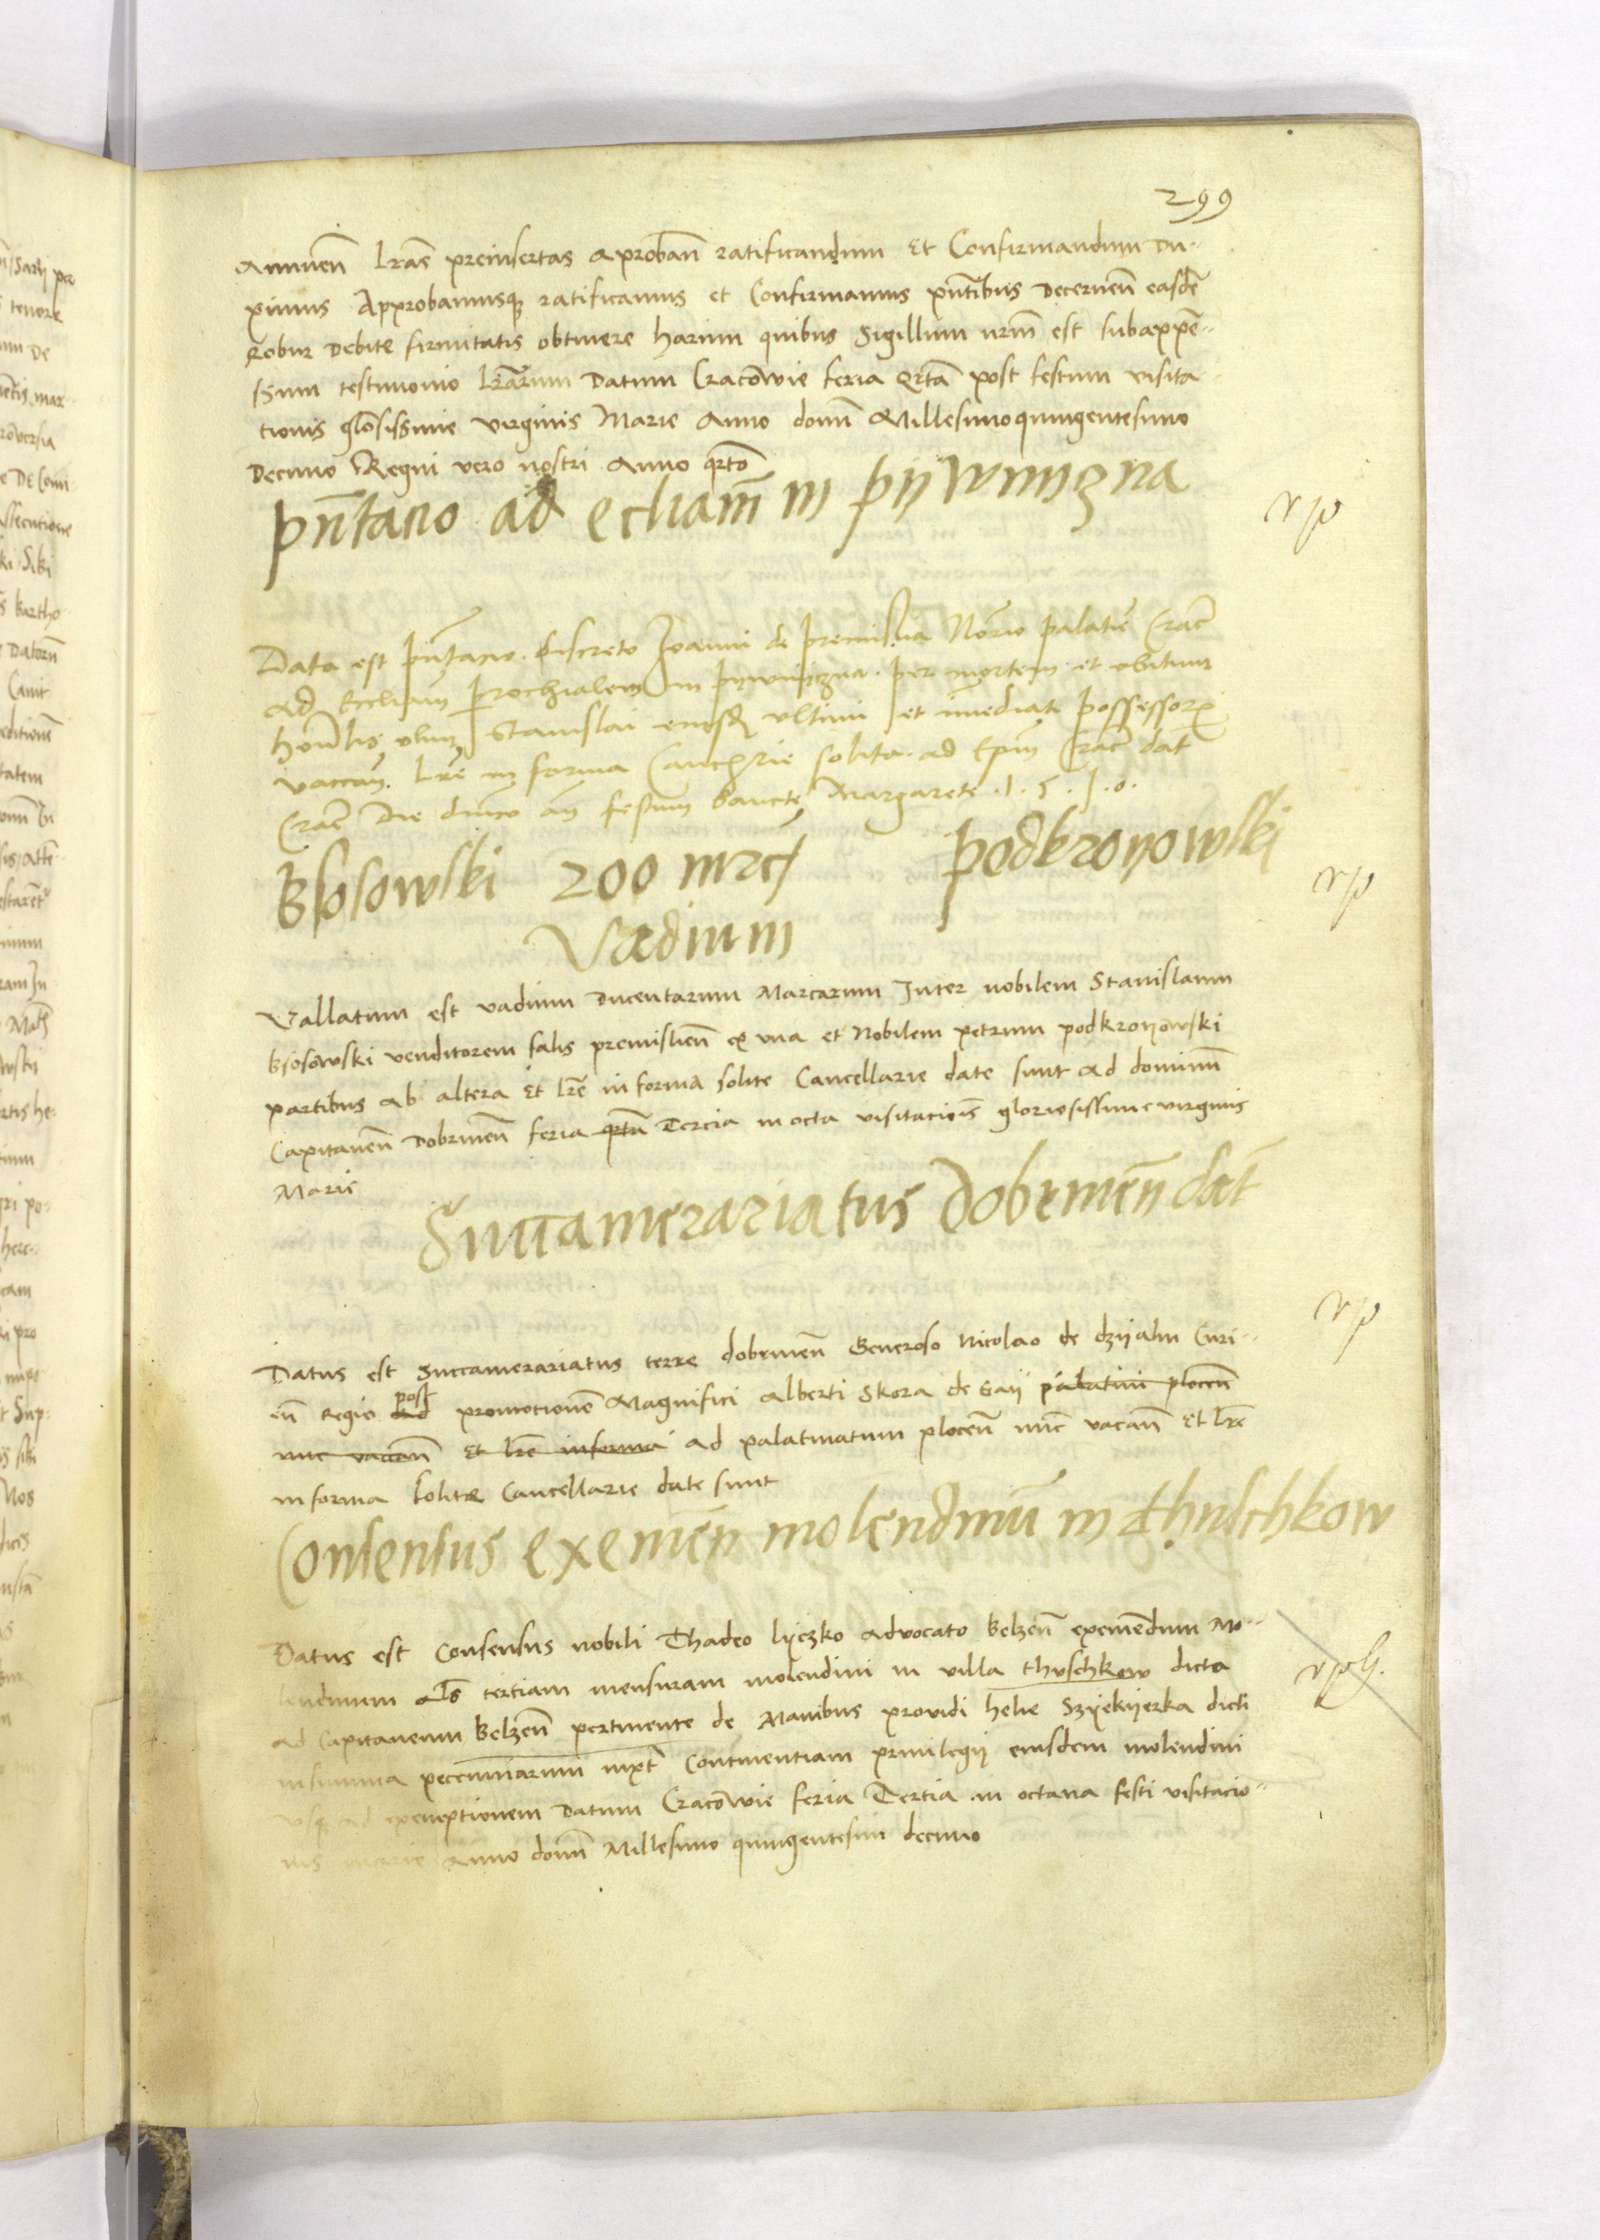 299
Annuen̄ lr̄as preinsertas aproban̄ ratificandum Et Confirmandum Du-
ximus Approbamusq̢ ratificamus et Confirmamus pn̄tibus Decernen̄ easdē
Robur debite firmitatis obtinere harum quibus Sigillum nr̄m est subappē-
ssum testimonio lr̄arum Datum Cracowie feria qrta post festum visita-
tionis glōsissime virginis Marie Anno domī Millesimoquingentesimo
Decimo Regni vero nostri Anno qrto
pn̄tacio ad eccliam̄ in pijwnijzna
r/p
Data est pn̄tacio discreto Joanni de premislia Notrio palatin̄ Crac̄
Ad Eccliam prochialem in pijwnijczna per mortem et obitum
honlis olim Stanislai eiusd̄ ultimi et imediati possessoris
vaccan̄. lr̄e in forma Cancellrie solita ad Epm̄ Crac̄ dat̄
Crac̄ Die dnīco an̄ festum Sancte Margarete .1.5.1.0.
Bsosowski 200 mrc̄ podkronowski
r/p
Vadium
Vallatum est vadium ducentarum Marcarum Inter nobilem Stanislaum
Bsosowski venditorem salis premislien̄ ex una et Nobilem petrum podkronowski
partibus Ab altera Et lr̄e in forma solite Cancellarie date sunt ad dominum̄
Capitaneum̄ Dobrinen̄ feria qrta Tercia in octa visitaciōis gloriosissime virginis
Marie
Succamerariatus Dobrinen̄ dat̄
r/p
Datus est Succamerariatus terre dobrinen̄ Generoso Nicolao de dzijalin Curi-
en̄ Regio Ad post promotionē Magnifici Alberti Skora de Gaij palatini plocen̄
nuc vaccan̄ Et lr̄e in forma ad palatinatum plocen̄ nūc vacan̄ Et lr̄e
in forma Solite Cancellarie date sunt
Consensus eximen̄ molendinū in thuschkow
Datus est Consensus nobili Thadeo lyczko Advocato Belzen̄ eximendum Mo-
lendinum als̄ tertiam mensuram molendini in villa thuschkow dicta
ad Capitaneum Belzen̄ pertinente de Manibus providi helie Szijekijerka dicti
in summa pecuniarum iuxt̄ Continentiam privilegij eiusdem molendini
usq̢ ad exemptionem Datum Cracowie feria Tertia in octava festi visitacio-
nis marie Anno domī Millesimo quingentesimi decimo